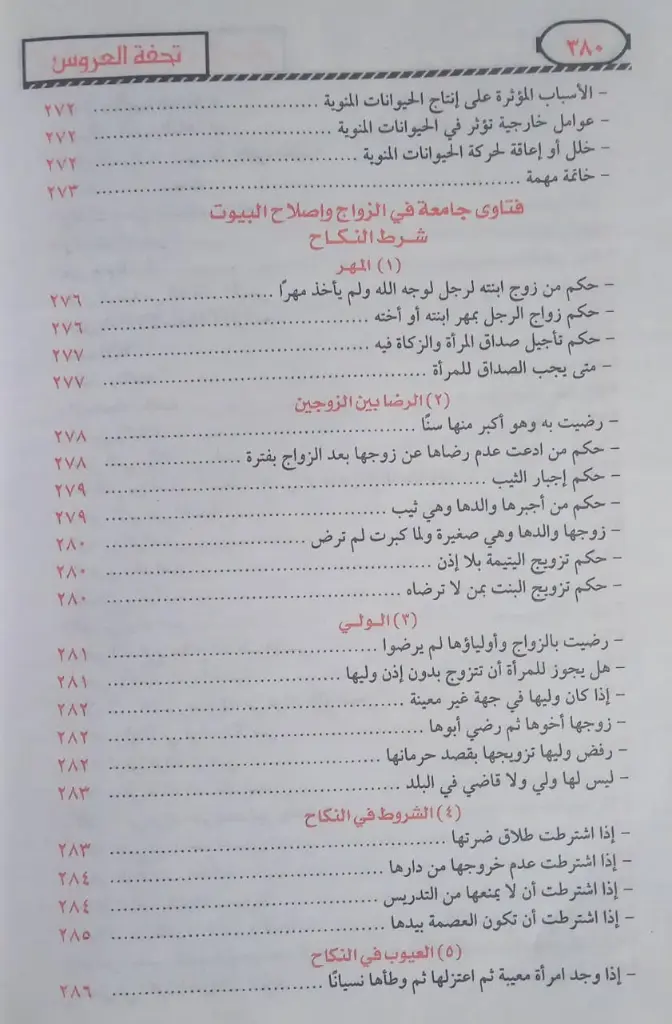 ٣٨٠
تحفة العروس
- الأسباب المؤثرة على إنتاج الحيوانات المنوية ........ ٢٧٢
- عوامل خارجية تؤثر في الحيوانات المنوية ........ ٢٧٢
- خلل أو إعاقة لحركة الحيوانات المنوية ........ ٢٧٢
- خاتمة مهمة ........ ٢٧٣
فتاوى جامعة في الزواج وإصلاح البيوت
شرط النكاح
(١) المهر
- حكم من زوج ابنته لرجل لوجه الله ولم يأخذ مهرًا ........ ٢٧٦
- حكم زواج الرجل بمهر ابنته أو أخته ........ ٢٧٦
- حكم تأجيل صداق المرأة والزكاة فيه ........ ٢٧٧
- متى يجب الصداق للمرأة ........ ٢٧٧
(٢) الرضا بين الزوجين
- رضيت به وهو أكبر منها سنًا ........ ٢٧٨
- حكم من ادعت عدم رضاها عن زوجها بعد الزواج بفترة ........ ٢٧٨
- حكم إجبار الثيب ........ ٢٧٩
- حكم من أجبرها والدها وهي ثيب ........ ٢٧٩
- زوجها والدها وهي صغيرة ولما كبرت لم ترض ........ ٢٨٠
- حكم تزويج اليتيمة بلا إذن ........ ٢٨٠
- حكم تزويج البنت بمن لا ترضاه ........ ٢٨٠
(٣) الولي
- رضيت بالزواج وأولياؤها لم يرضوا ........ ٢٨١
- هل يجوز للمرأة أن تتزوج بدون إذن وليها ........ ٢٨١
- إذا كان وليها في جهة غير معينة ........ ٢٨٢
- زوجها أخوها ثم رضي أبوها ........ ٢٨٢
- رفض وليها تزويجها بقصد حرمانها ........ ٢٨٢
- ليس لها ولي ولا قاضي في البلد ........ ٢٨٣
(٤) الشروط في النكاح
- إذا اشترطت طلاق ضرتها ........ ٢٨٣
- إذا اشترطت عدم خروجها من دارها ........ ٢٨٤
- إذا اشترطت أن لا يمنعها من التدريس ........ ٢٨٤
- إذا اشترطت أن تكون العصمة بيدها ........ ٢٨٥
(٥) العيوب في النكاح
- إذا وجد امرأة معيبة ثم اعتزلها ثم وطأها نسيانًا ........ ٢٨٦